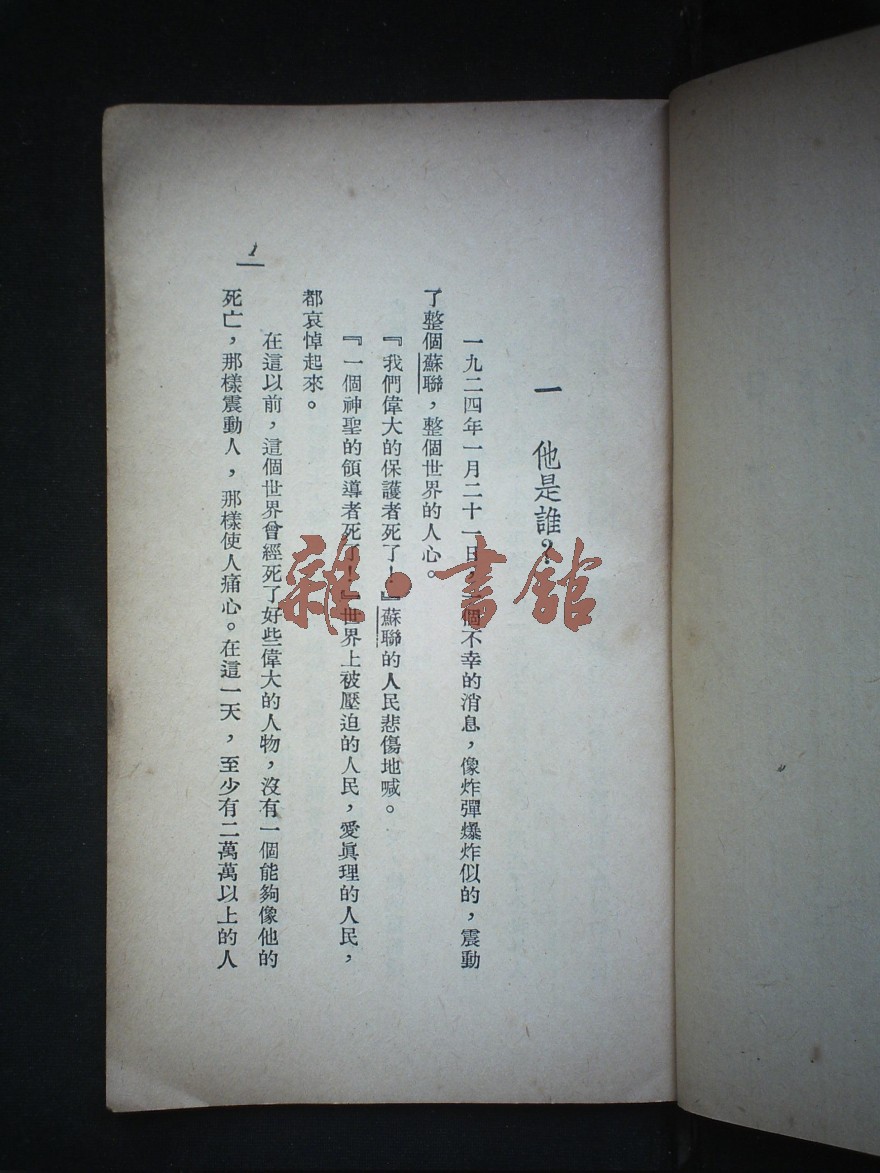 一 他是誰？
一九二四年一月二十一日，一個不幸的消息，像炸彈爆炸似的，震動
了整個蘇聯，整個世界的人心。
『我們偉大的保護者死了！』蘇聯的人民悲傷地喊。
『一個神聖的領導者死了！』世界上被壓迫的人民，愛眞理的人民，
都哀悼起來。
在這以前，這個世界曾經死了好些偉大的人物，沒有一個能夠像他的
死亡，那樣震動人，那樣使人痛心。在這一天，至少有二萬萬以上的人
1
雜·書館